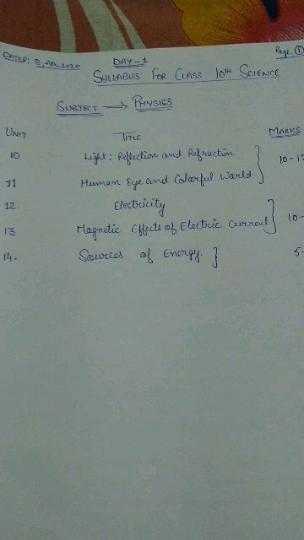 DAY-1 Page ①
SYLLABUS FOR CLASS 10th SCIENCE
SUBJECT → PHYSICS
UNIT TITLE MARKS
10 Light: Reflection and Refraction
11 Human Eye and Colorful World 10-1
12. Electricity
13 Magnetic Effects of Electric Current 10-
14. Sources of Energy. 5-